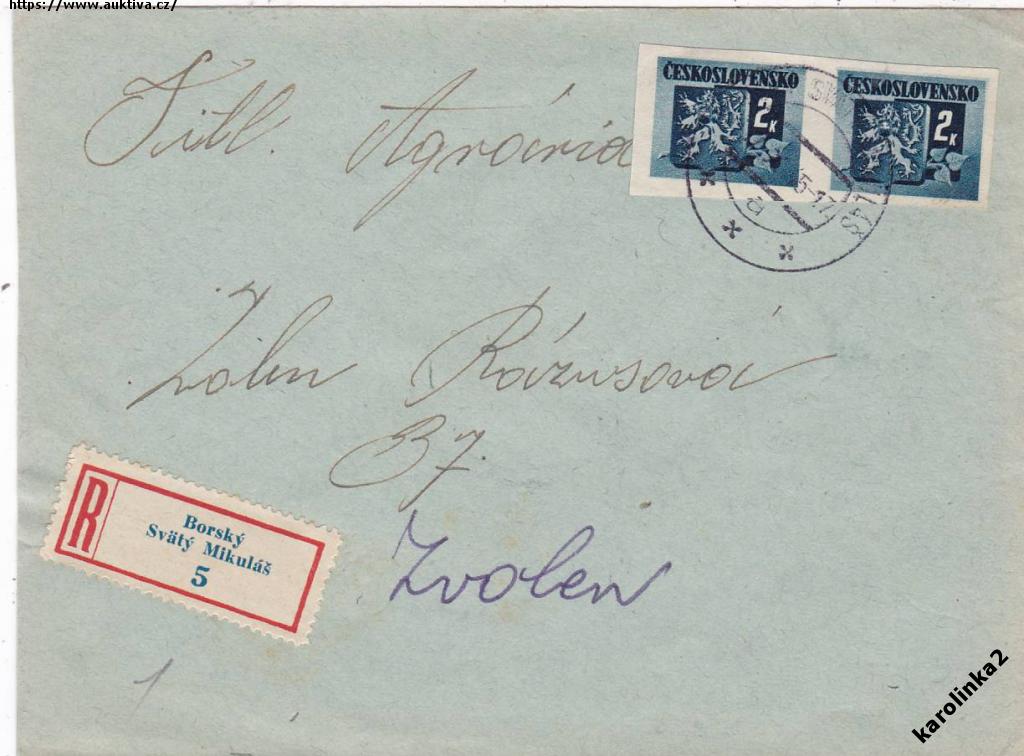 https://www.auktiva.cz/
Titl. Agrária
ČESKOSLOVENSKO
2K
ČESKOSLOVENSKO
2K
Zolen Rázusová
37.
Zvolen
R
Borský
Svätý Mikuláš
5
1
karolinka2